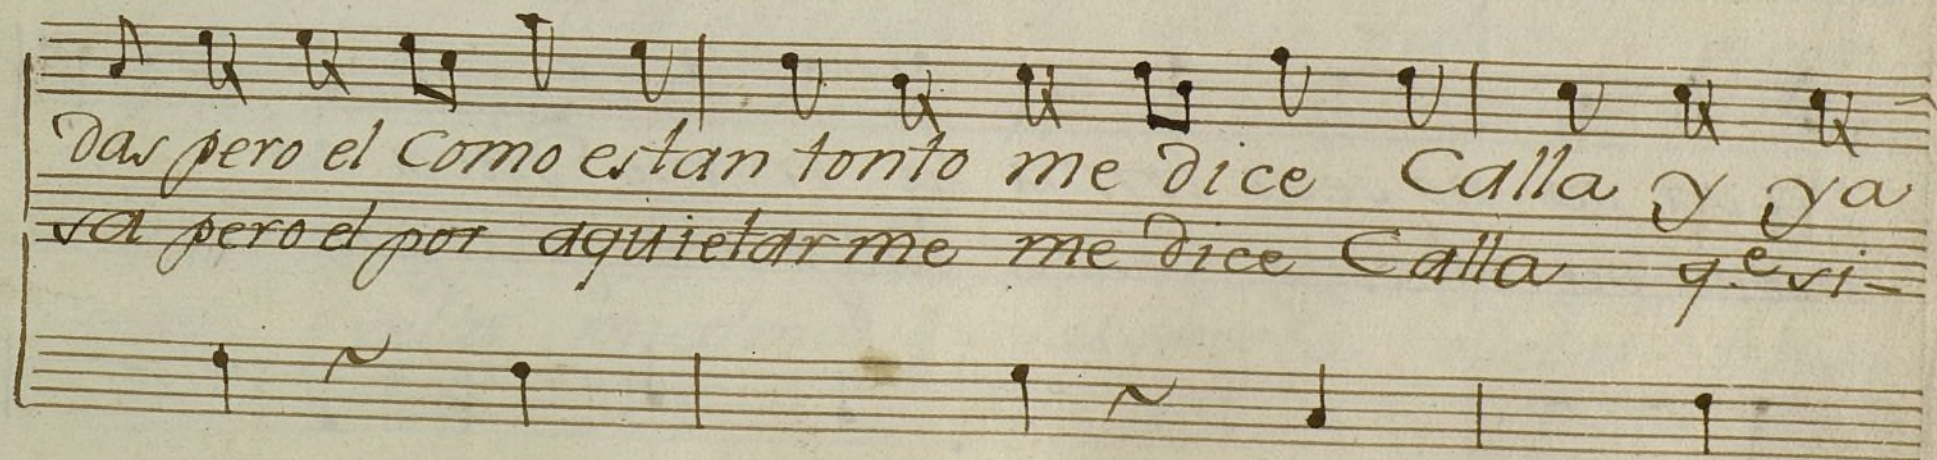 das pero el Como estan tonto me dice Calla y ya
sa pero el por aquietarme me dice Calla q.e si-